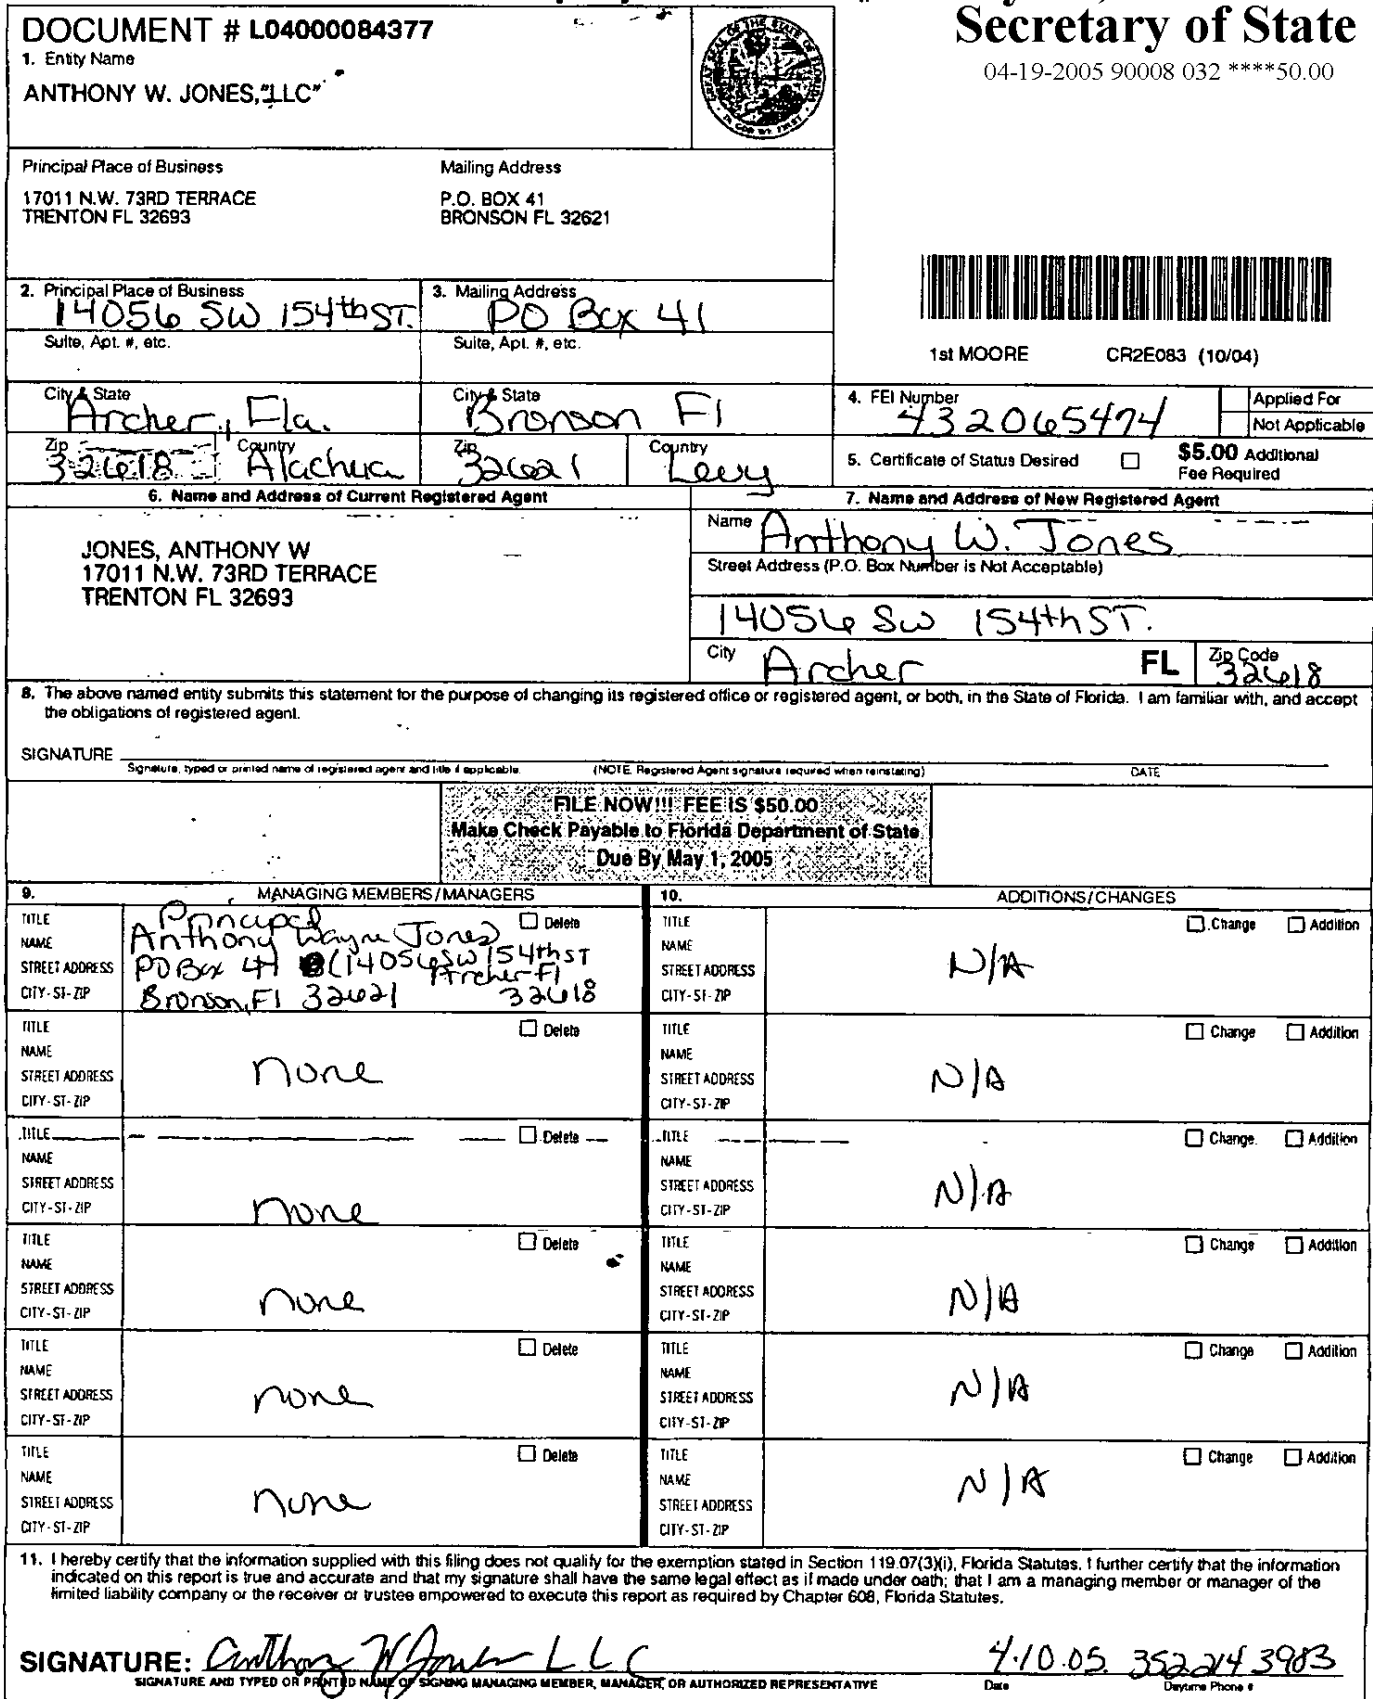 Secretary of State
04-19-2005 90008 032 ****50.00
DOCUMENT # L04000084377
1. Entity Name
ANTHONY W. JONES, "LLC"
Principal Place of Business
17011 N.W. 73RD TERRACE
TRENTON FL 32693
Mailing Address
P.O. BOX 41
BRONSON FL 32621
2. Principal Place of Business
14056 SW 154th ST.
Suite, Apt. #, etc.
3. Mailing Address
PO Box 41
Suite, Apt. #, etc.
1st MOORE CR2E083 (10/04)
City & State
Archer, Fla.
City & State
Bronson Fl
Zip
32618
Country
Alachua
Zip
32621
Country
Levy
4. FEI Number
432065474
Applied For
Not Applicable
5. Certificate of Status Desired
$5.00 Additional
Fee Required
6. Name and Address of Current Registered Agent
JONES, ANTHONY W
17011 N.W. 73RD TERRACE
TRENTON FL 32693
7. Name and Address of New Registered Agent
Name Anthony W. Jones
Street Address (P.O. Box Number is Not Acceptable)
14056 SW 154th ST.
City Archer FL Zip Code 32618
8. The above named entity submits this statement for the purpose of changing its registered office or registered agent, or both, in the State of Florida. I am familiar with, and accept
the obligations of registered agent.
SIGNATURE
Signature, typed or printed name of registered agent and title if applicable. (NOTE: Registered Agent signature required when reinstating) DATE
FILE NOW!!! FEE IS $50.00
Make Check Payable to Florida Department of State
Due By May 1, 2005
9. MANAGING MEMBERS/MANAGERS
TITLE Principal Delete
NAME Anthony Wayne Jones
STREET ADDRESS PO Box 41 (14056 SW 154th ST
CITY-ST-ZIP Bronson, Fl 32621 Archer Fl 32618
TITLE Delete
NAME
STREET ADDRESS none
CITY-ST-ZIP
TITLE Delete
NAME
STREET ADDRESS
CITY-ST-ZIP none
TITLE Delete
NAME
STREET ADDRESS none
CITY-ST-ZIP
TITLE Delete
NAME
STREET ADDRESS none
CITY-ST-ZIP
TITLE Delete
NAME
STREET ADDRESS none
CITY-ST-ZIP
10. ADDITIONS/CHANGES
TITLE Change Addition
NAME
STREET ADDRESS N/A
CITY-ST-ZIP
TITLE Change Addition
NAME
STREET ADDRESS N/A
CITY-ST-ZIP
TITLE Change Addition
NAME
STREET ADDRESS N/A
CITY-ST-ZIP
TITLE Change Addition
NAME
STREET ADDRESS N/A
CITY-ST-ZIP
TITLE Change Addition
NAME
STREET ADDRESS N/A
CITY-ST-ZIP
TITLE Change Addition
NAME N/A
STREET ADDRESS
CITY-ST-ZIP
11. I hereby certify that the information supplied with this filing does not qualify for the exemption stated in Section 119.07(3)(i), Florida Statutes. I further certify that the information
indicated on this report is true and accurate and that my signature shall have the same legal effect as if made under oath; that I am a managing member or manager of the
limited liability company or the receiver or trustee empowered to execute this report as required by Chapter 608, Florida Statutes.
SIGNATURE: Anthony W Jones LLC 4.10.05. 352 214 3983
SIGNATURE AND TYPED OR PRINTED NAME OF SIGNING MANAGING MEMBER, MANAGER, OR AUTHORIZED REPRESENTATIVE Date Daytime Phone #